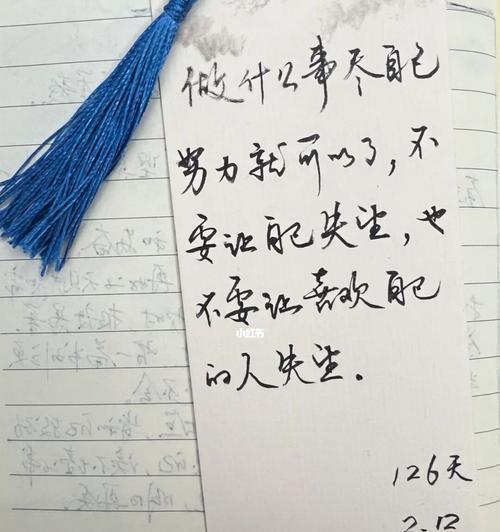 做什么事尽自己
努力就可以了，不
要让自己失望，也
不要让喜欢自己
小红书
的人失望．
126天
2.12